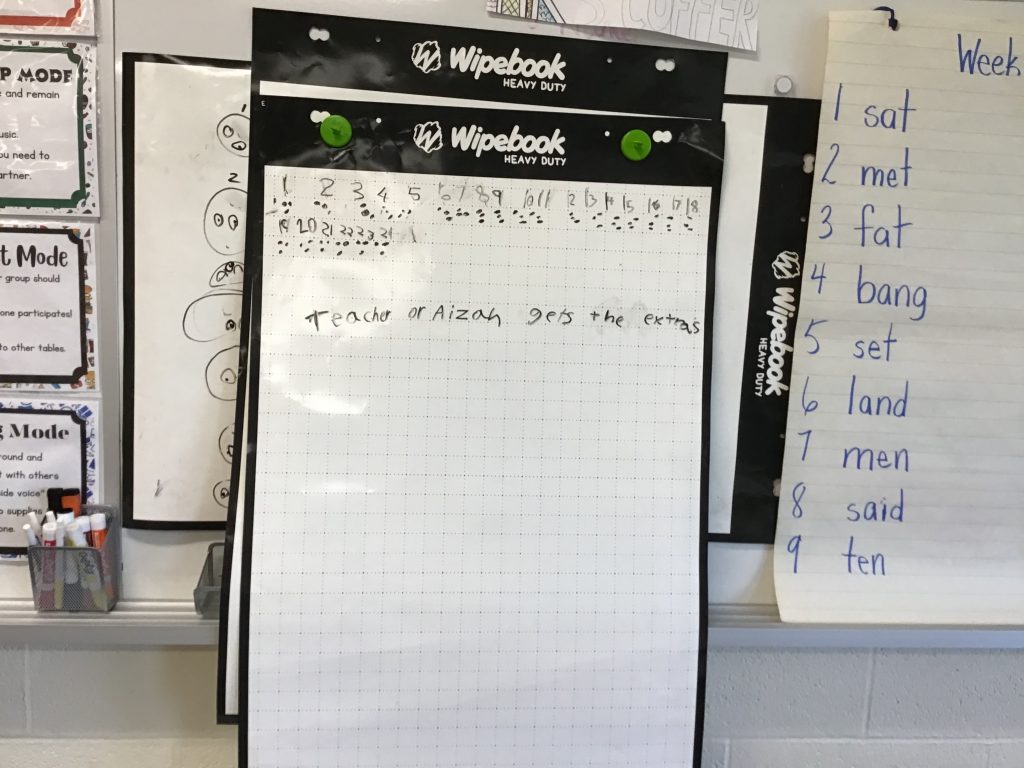 P MODE
e and remain
usic.
ou need to
artner.
t Mode
r group should
one participates!
to other tables.
g Mode
round and
t with others
side voice"
o supplies
one.
1
2
COFFER
Wipebook
HEAVY DUTY
Wipebook
HEAVY DUTY
1 2 3 4 5 6 7 8 9 10 11 12 13 14 15 16 17 18
19 20 21 22 23 24
Teacher or Aizah gets the extras
Wipebook
HEAVY DUTY
Week
1 sat
2 met
3 fat
4 bang
5 set
6 land
7 men
8 said
9 ten